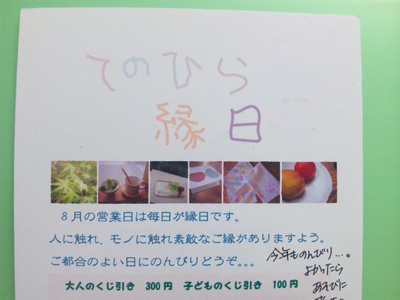 てのひら
縁日
8月の営業日は毎日が縁日です。
人に触れ、モノに触れ素敵なご縁がありますよう。
ご都合のよい日にのんびりどうぞ。。。
大人のくじ引き 300円 子どものくじ引き 100円
今年ものんびり…。
よかったら
あそびに